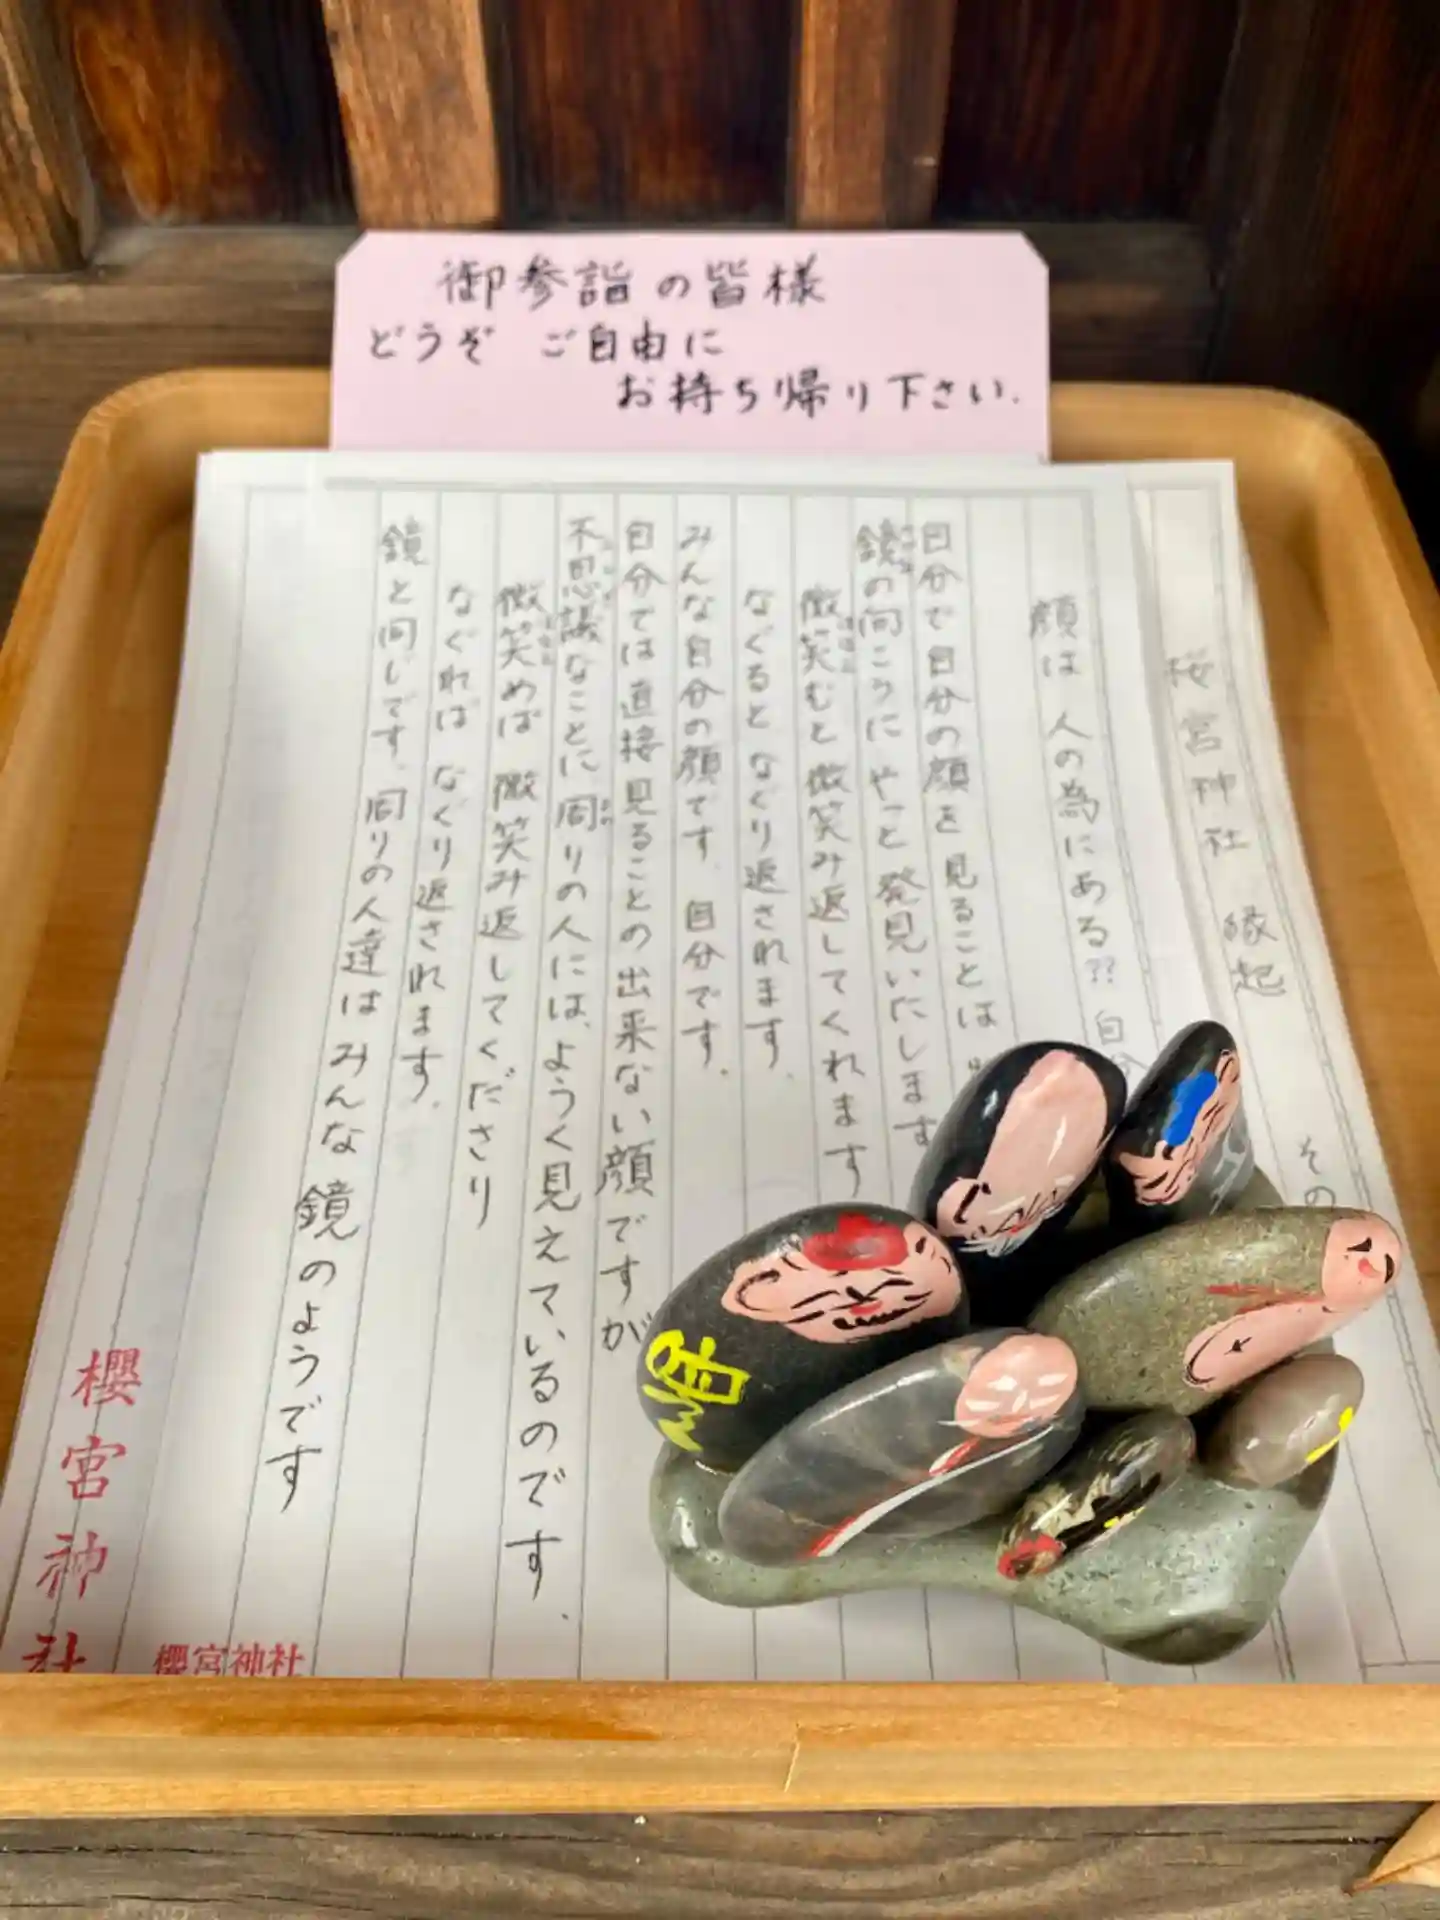 御参詣の皆様
どうぞ ご自由に
お持ち帰り下さい.
桜宮神社 縁起 その
顔は 人の為にある??
自分で自分の顔を 見ることは
鏡の向こうに やっと 発見いたします
微笑むと 微笑み返してくれます
なぐると なぐり返されます.
みんな自分の顔です. 自分です.
自分では直接見ることの出来ない顔ですが
不思議なことに 周りの人には、ようく見えているのです.
微笑めば 微笑み返してくださり
なぐれば なぐり返されます.
鏡と同じです. 周りの人達は みんな 鏡のようです
櫻宮神社
櫻宮神社